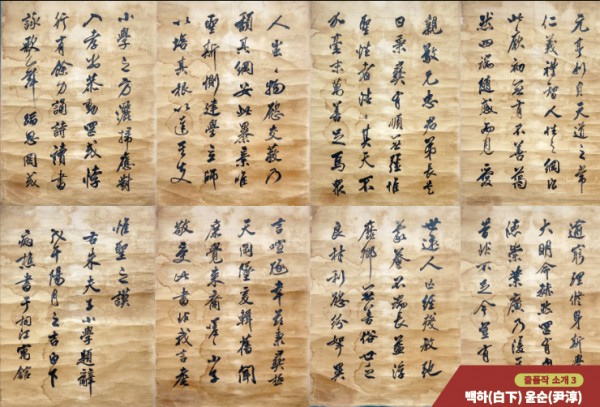 元亨利貞天道之常
仁義禮智人性之綱凡
此厥初無有不善藹
然四端隨感而見愛
親敬兄忠君弟長是
曰秉彝有順無彊惟
聖性者浩〻其天不
加毫末萬善足焉衆
人蚩〻物慾交蔽乃
頹其綱安此暴棄惟
聖斯惻建學立師
以培其根以達其支
小學之方灑掃應對
入孝出恭動罔或悖
行有餘力誦詩讀書
詠歌舞蹈思罔或
逾窮理修身斯學
大明命赫然罔有內
德崇業廣乃復
昔非不足今豈有
世遠人亡經殘教弛
蒙養不端長益浮
靡鄉無善俗世乏
良材利慾紛挐異
言喧豗幸玆秉彝極
天罔墜爰輯舊聞
庶覺來裔嗟〻小子
敬受此書匪我言耄
惟聖之謨
右朱夫子小學題辭
戊午陽月之吉白下
病樵書于桐江寓館
출품작 소개 3
백하(白下) 윤순(尹淳)